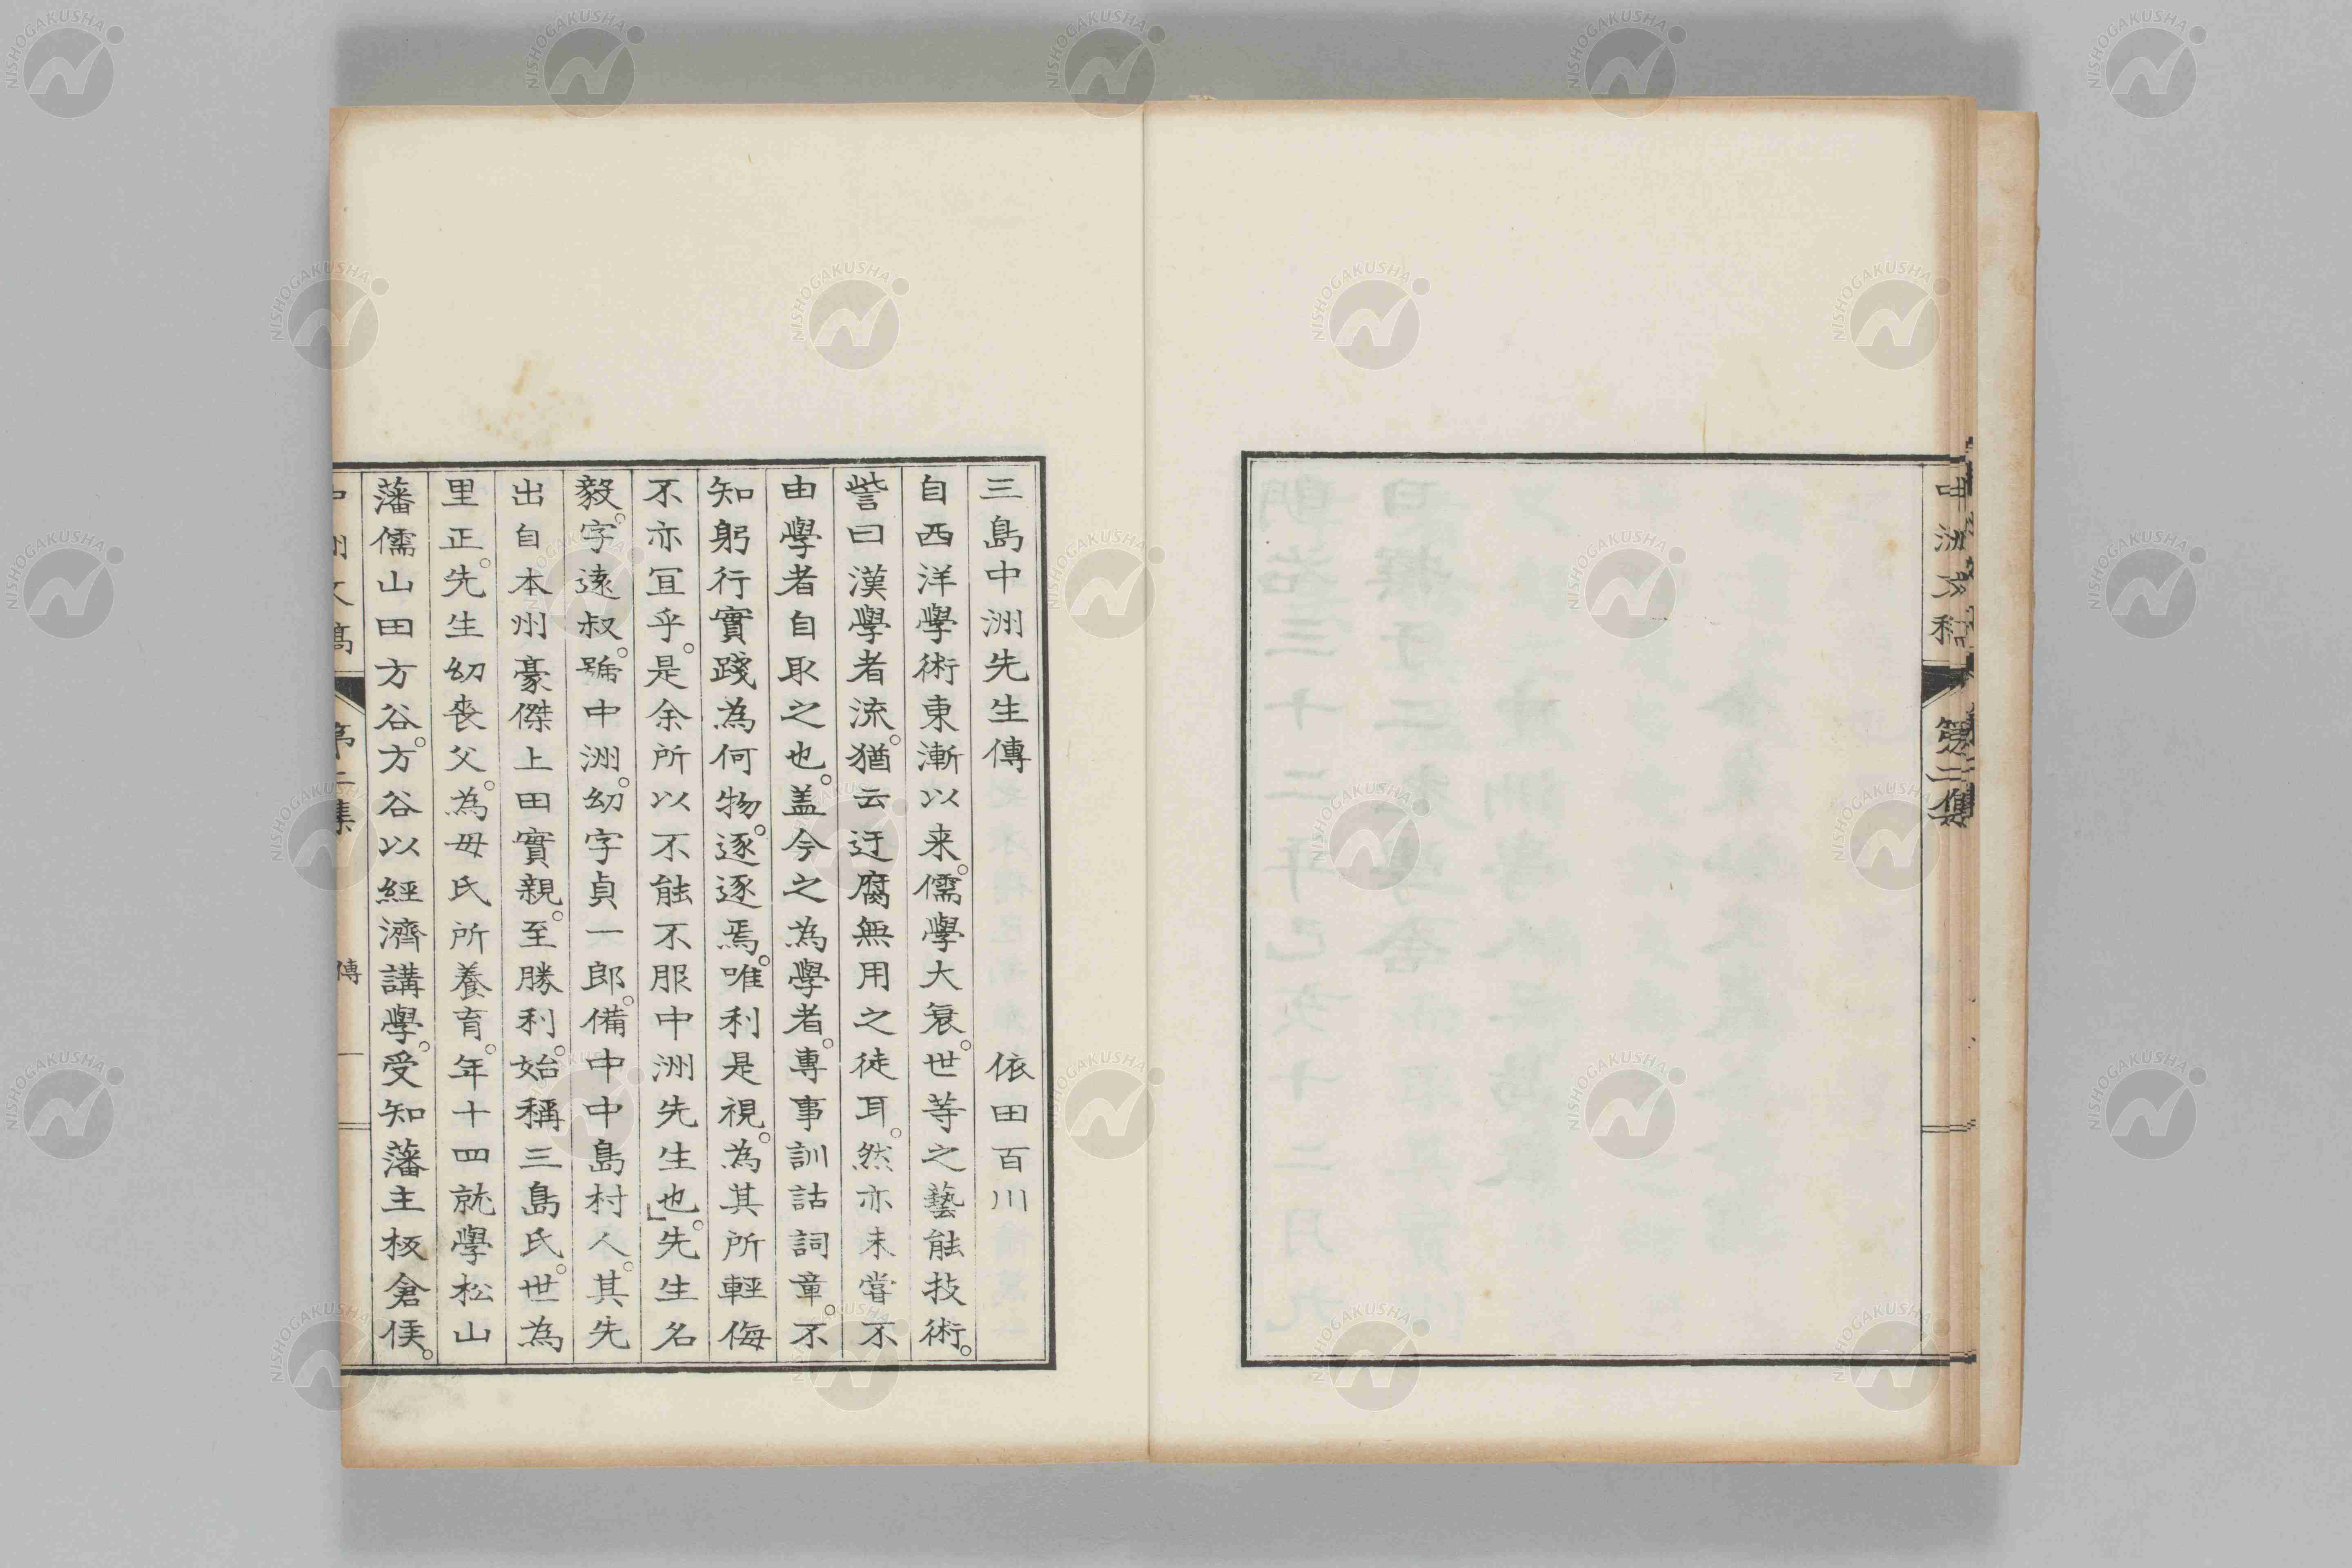 中洲文稿 第二集
三島中洲先生傳 依田百川
自西洋學術東漸以来。儒學大衰。世等之藝能技術。
訾曰漢學者流。猶云迂腐無用之徒耳。然亦未嘗不
由學者自取之也。盖今之為學者。專事訓詁詞章。不
知躬行實踐為何物。逐逐焉。唯利是視。為其所輕侮
不亦冝乎。是余所以不能不服中洲先生也。」先生名
毅。字遠叔。號中洲。幼字貞一郎。備中中島村人。其先
出自本州豪傑上田實親。至勝利。始稱三島氏。世為
里正。先生幼喪父。為母氏所養育。年十四就學松山
藩儒山田方谷。方谷以經濟講學。受知藩主板倉侯。
中洲文稿 第二集 傳 一
NISHOGAKUSHA